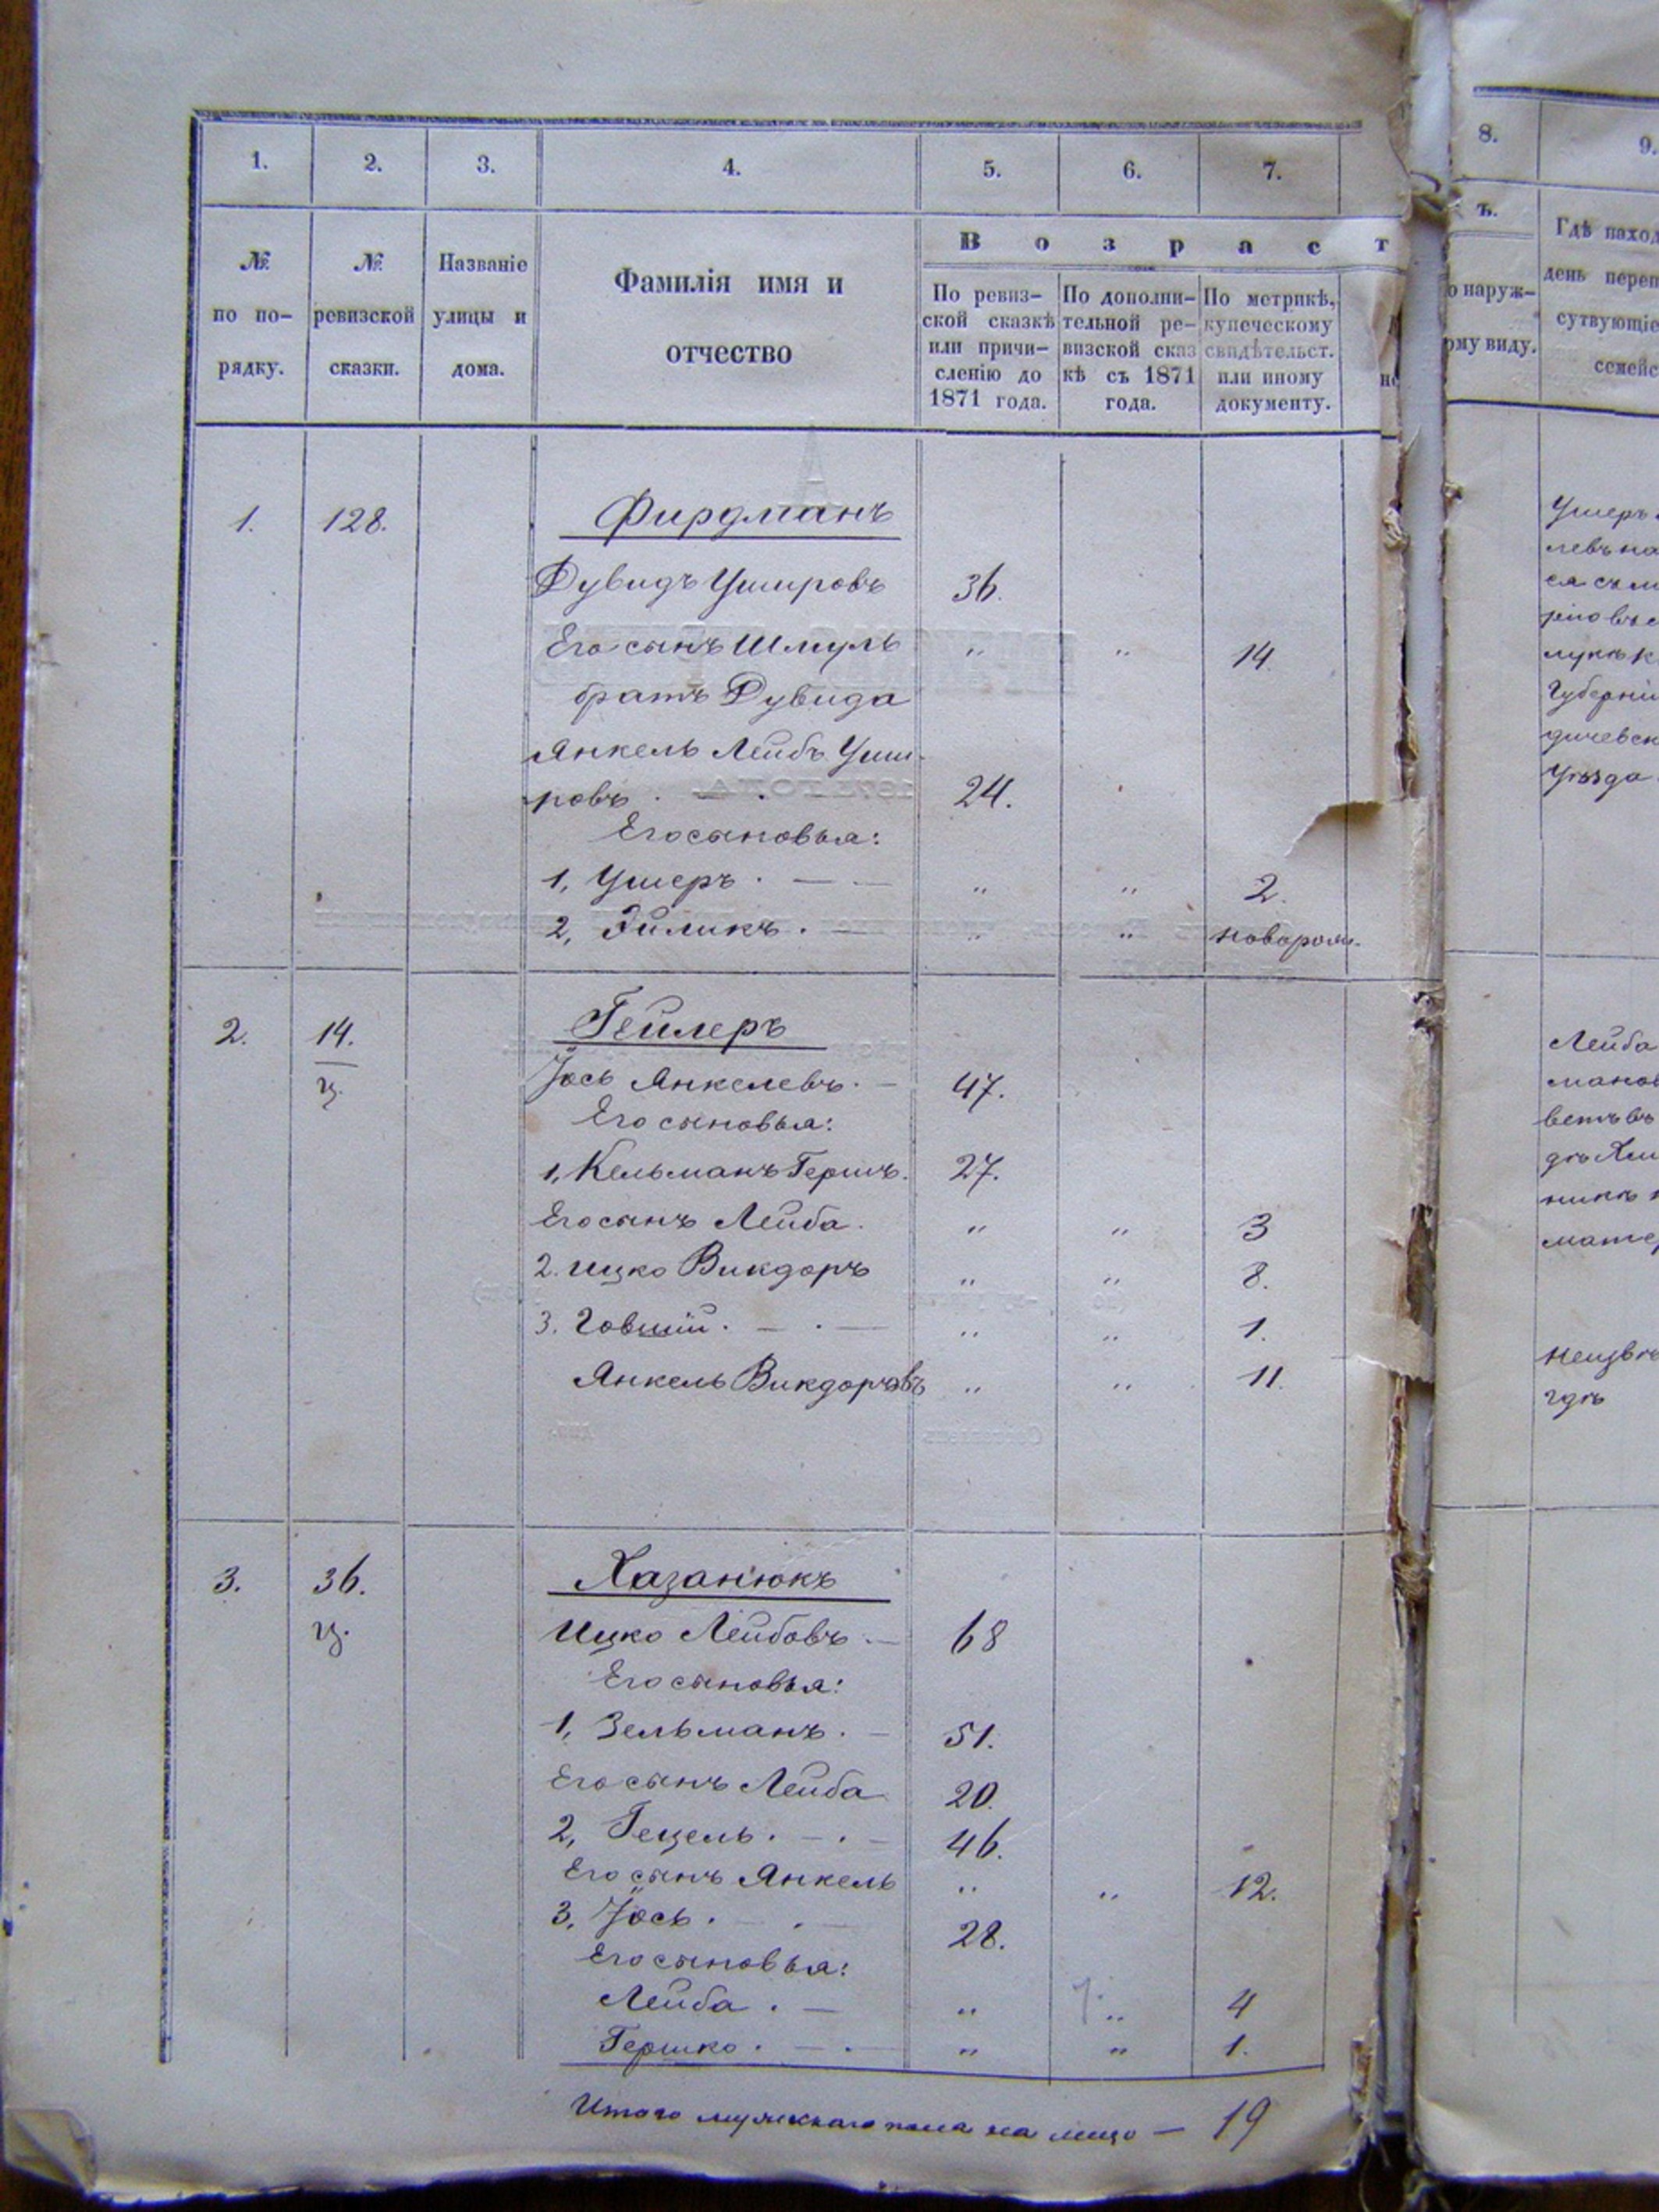 1. 2. 3. 4. 5. 6. 7.
№ по по-рядку.
№ ревизской сказки.
Названіе улицы и дома.
Фамилія имя и отчество
В о з р а с т
По ревиз-ской сказкѣ или причи-сленію до 1871 года.
По дополни-тельной ре-визской сказ кѣ съ 1871 года.
По метрикѣ, купеческому свидѣтельст. или иному документу.
1. 128. Фирдманъ
Дувидъ Ушировъ 36.
Его сынъ Шмуль " " 14
братъ Дувида
Янкель Лейбъ Уши-
ровъ 24.
Его сыновья:
1, Ушеръ. " " 2.
2, Эйликъ. " " новорож.
2. 14. Гейлеръ
ч.
Іось Янкелевъ. 47.
Его сыновья:
1, Кельманъ Гершъ. 27.
Его сынъ Лейба. " " 3
2. Ицко Викдоръ " " 8.
3. Говшій. " " 1.
Янкель Викдоровъ " " 11.
3. 36. Хазанюкъ
ч.
Ицко Лейбовъ. 68
Его сыновья:
1, Зельманъ. 51.
Его сынъ Лейба 20.
2, Гецель. 46.
Его сынъ Янкель " " 12.
3, Іось. 28.
Его сыновья:
Лейба. " " 4
Гершко. " " 1.
Итого мужскаго пола на лицо — 19
8. 9.
ъ.
о наруж-
ому виду.
Гдѣ наход
день переп
сутвующіе
семейс
Ушеръ
левъ на
ся съ м
ріовъ
Губерні
дичевск
Уѣзда
Лейба
манов
ветъ въ
дѣ Хм
никѣ
матер
Неизвѣ
гдѣ